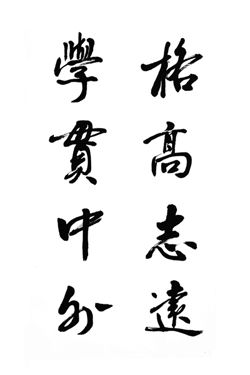 格高志遠
學貫中外